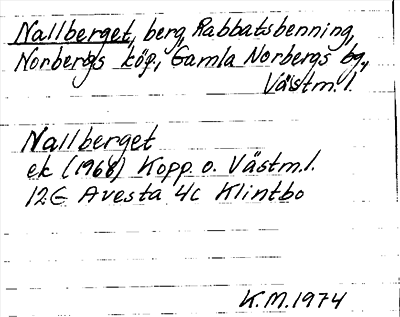 Nallberget, berg, Rabbatsbenning,
Norbergs köp., Gamla Norbergs bg.,
Västm. l.
Nallberget
ek (1968) Kopp. o. Västm. l.
12G Avesta 4c Klintbo
K.M. 1974